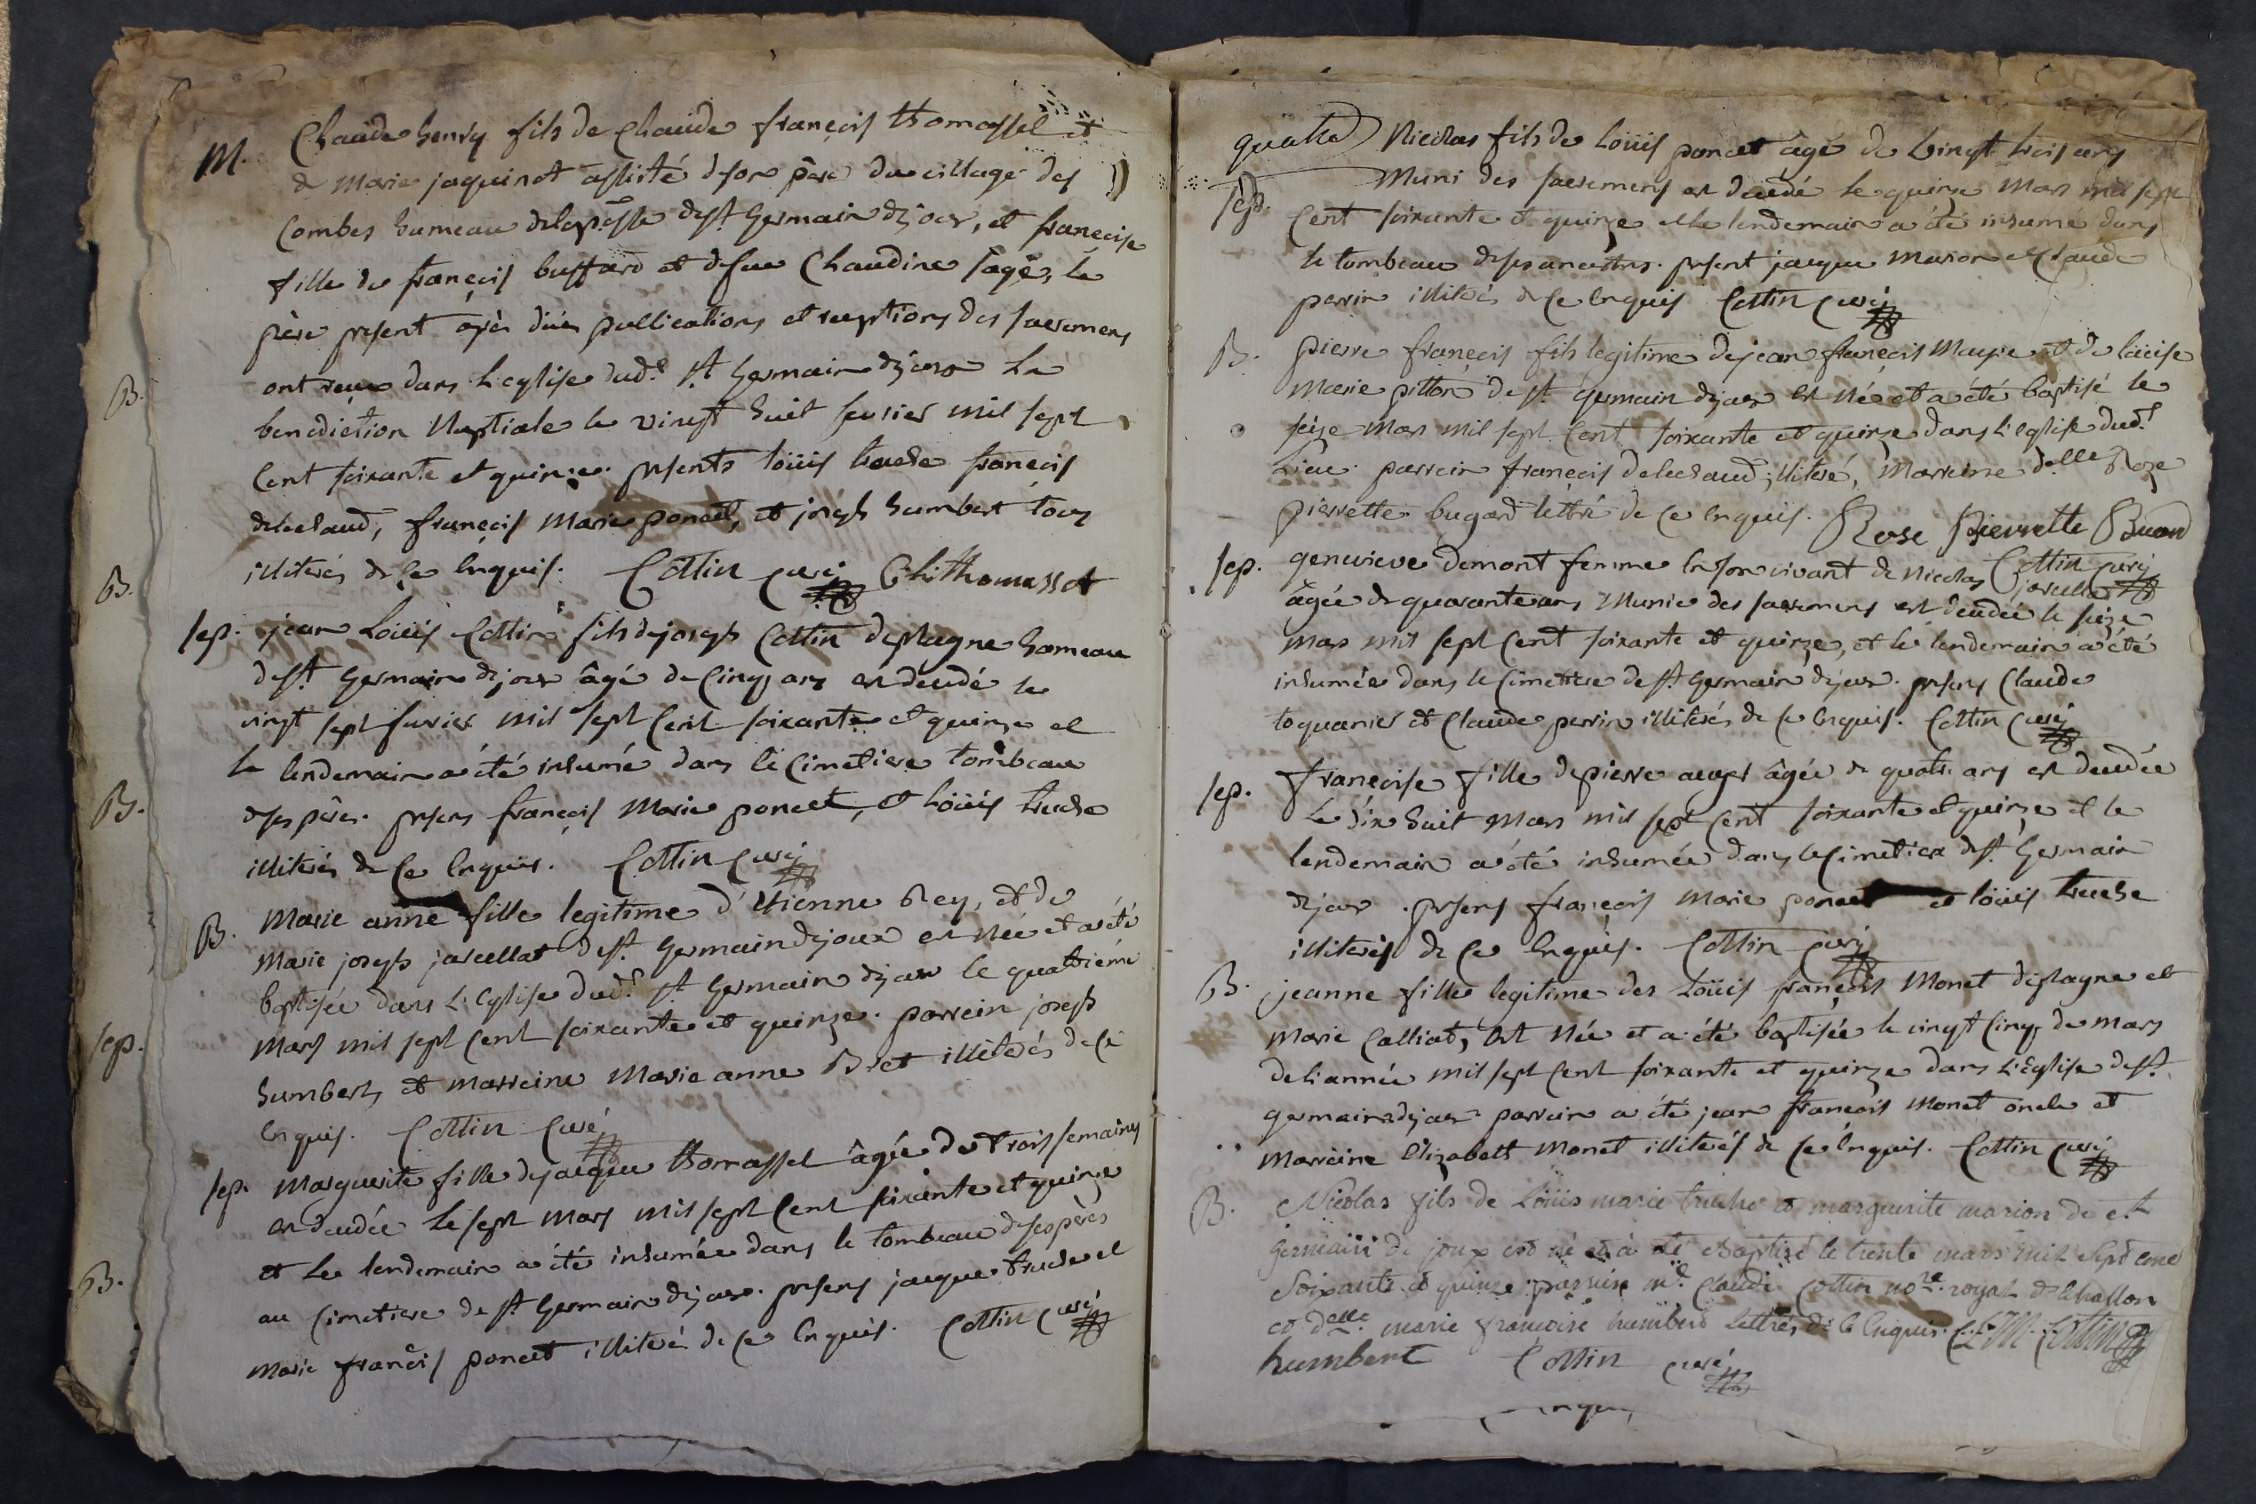 M. Claude henry fils de Claude françois thomasset et
de Marie jaquinot assisté deson père du village des
Combes hameau delap.sse dest Germain dejoux, et françoise
fille de françois buffard et defue Claudine sage, le
père present après düës publications et receptions des sacremens
ont reçu dans L'eglise dud.t St Germain dejoux La
benediction Nuptiale le vingt huit fevrier mil sept
Cent soixante et quinze. presents loüis truche françois
delechaud, françois Marie poncet, et joseph humbert tous
illiterés de ce Enquis. Cottin Curé C hi thomasset
sep. jean Loüis Cottin fils dejoseph Cottin deplagne hameau
dest Germain dejoux âgé de Cinq ans est decedé le
vingt sept fevrier mil sept Cent soixante et quinze et
le lendemain a été inhumé dans le Cimetiere tombeau
deses pères. presens françois Marie poncet, et Loüis truche
illiterés de Ce Enquis. Cottin Curé
B. Marie anne fille legitime d'Etienne Rey, et de
Marie joseph jarcellat dest. Germain dejoux est Née et a été
baptisée dans L'Eglise dud.t st Germain dejoux le quattriéme
Mars mil sept Cent soixante et quinze. parrein joseph
humbert, et marreine Marie anne Bret illiterés de Ce
Enquis. Cottin Curé
sep. Marguerite fille dejacque thomasset âgée de trois semaines
est decedée le sept Mars mil sept Cent soixante et quinze
et Le lendemain a été inhumée dans le tombeau deses pères
au Cimetiere de st Germain dejoux. presens jacque truche et
Marie françois poncet illiterés de Ce Enquis. Cottin Curé
B.
B.
B.
sep.
B.
quatre
sep. Nicolas fils de Loüis poncet âgé de vingt trois ans
Muni des sacremens est decedé le quinze Mars mil sept
Cent soixante et quinze et le lendemain a été inhumé dans
le tombeau deses ancestres. present jacque Marion et Claude
perrin illiterés de Ce Enquis Cottin Curé
B. pierre françois fils legitime dejean françois Maurie et de loüise
Marie pitton de st germain dejoux est Né et a été baptisé le
seize Mars mil sept Cent soixante et quinze dans L'eglise dud.t
Lieu. parrein françois delechaud illiteré, Marreine d.elle Roze
pierrette bugard lettré de Ce Enquis. Rose Pierrette Buard
sep. genevieve demont femme En son vivant de Nicolas Cottin Curé
âgée de quarante ans Munie des sacremens est decedée le seize
mars mil sept Cent soixante et quinze, et le lendemain a été
inhumée dans le Cimettiere de st Germain dejoux. presens Claude
toquanier et Claude perrin illiterés de Ce Enquis. Cottin Curé
sep. françoise fille depierre auger âgée de quatre ans est decedée
Le dix huit Mars mil sept Cent soixante et quinze et le
lendemain a été inhumée dans le Cimetiere dest Germain
dejoux. presens françois Marie poncet et loüis truche
illiterés de Ce Enquis. Cottin Curé
B. jeanne fille legitime des Loüis françois Monet deplagne et
Marie Calliat, est Née et a été baptisée le vingt Cinq de Mars
del'année mil sept Cent soixante et quinze dans L'Eglise dest
germain dejoux parrein a été jean françois Monet oncle et
Marreine Elizabeth Monet illiterés de Ce Enquis. Cottin Curé
B. Nicolas fils de Loüis marie truche et marguerite marion de st
germain de joux est né et à été Baptizé le trente mars mil sept cent
Soixante et quinze. parrein m.e Claude Cottin no.re royal de Chatillon
et d.elle marie francoise humbert lettrés de Ce Enquis. C.L.M. Cottin
humbert Cottin Curé